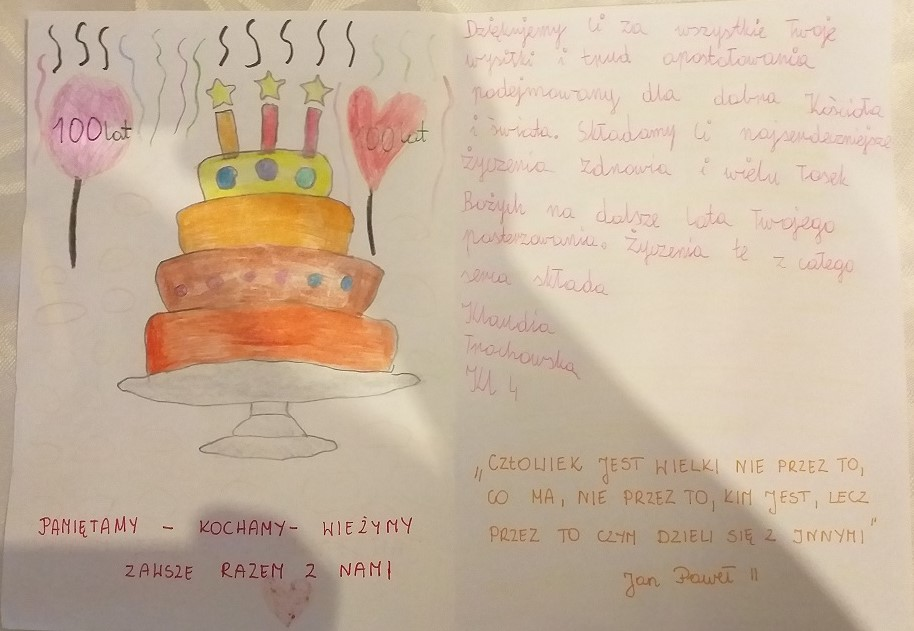 100 lat
100 lat
PAMIĘTAMY - KOCHAMY - WIEŻYMY
ZAWSZE RAZEM Z NAMI
Dziękujemy Ci za wszystkie Twoje
wysiłki i trud apostołowania
podejmowany dla dobra Kościoła
i świata. Składamy Ci najserdeczniejsze
Życzenia Zdrowia i wielu Łask
Bożych na dalsze Lata Twojego
pasterzowania. Życzenia te z całego
serca składa
Klaudia
Trochowska
Kl 4
„CZŁOWIEK JEST WIELKI NIE PRZEZ TO,
CO MA, NIE PRZEZ TO, KIM JEST, LECZ
PRZEZ TO CZYM DZIELI SIĘ Z INNYMI"
Jan Paweł II